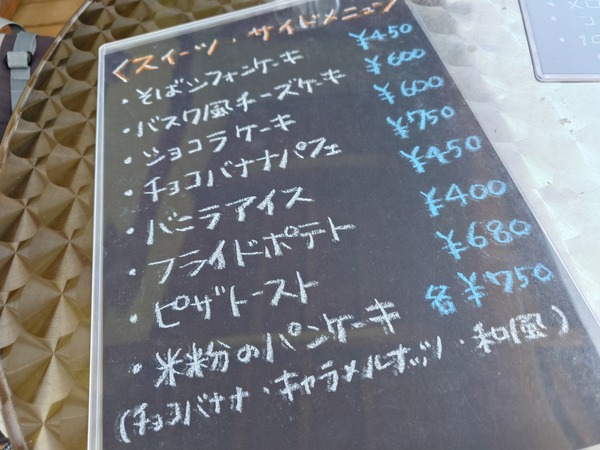 <スイーツ・サイドメニュー
・そばシフォンケーキ ¥450
・バスク風チーズケーキ ¥600
・ショコラケーキ ¥600
・チョコバナナパフェ ¥750
・バニラアイス ¥450
・フライドポテト ¥400
・ピザトースト ¥680
・米粉のパンケーキ 各¥750
(チョコバナナ・キャラメルナッツ・和風)